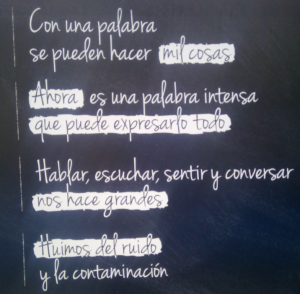 Con una palabra
se pueden hacer mil cosas
Ahora es una palabra intensa
que puede expresarlo todo
Hablar, escuchar, sentir y conversar
nos hace grandes
Huimos del ruido
y la contaminación